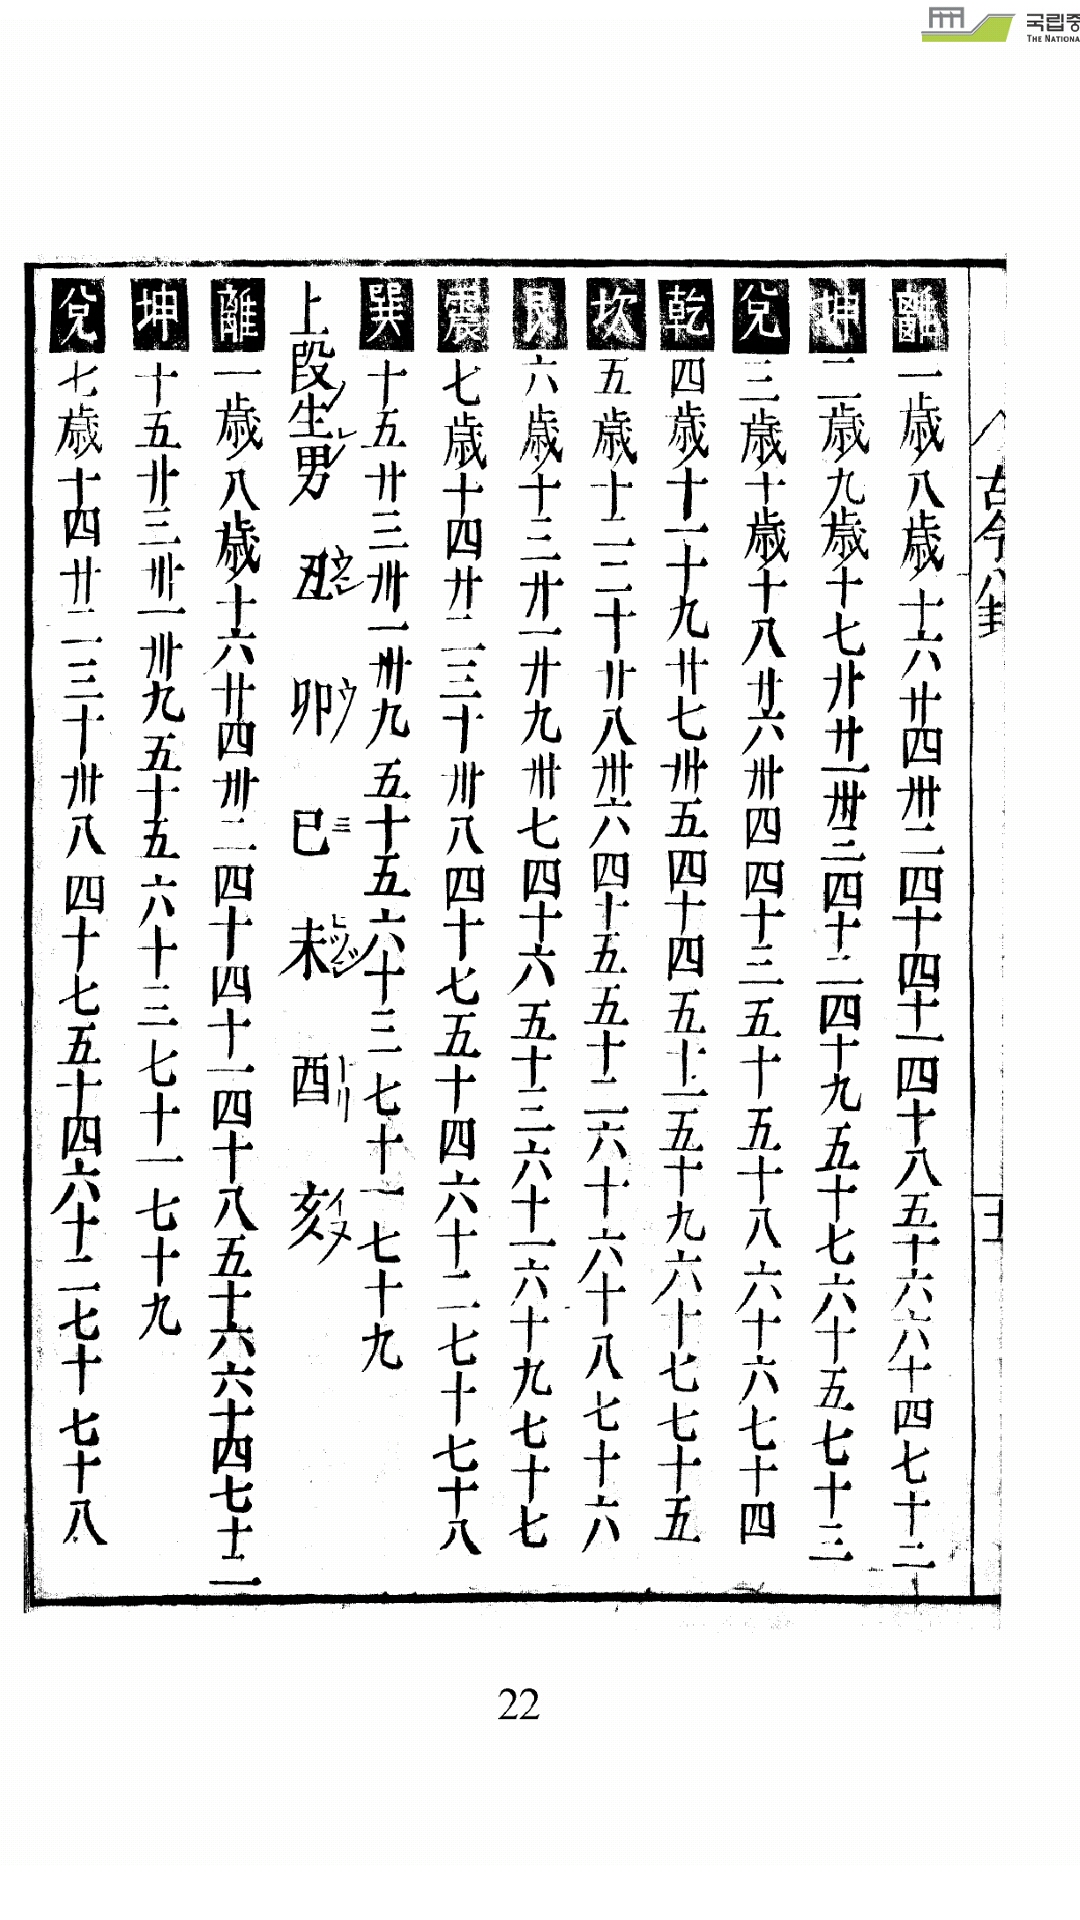 국립중
THE NATIONA
古今八卦
離 一歳 八歳 十六 廿四 卅二 四十 四十一 四十八 五十六 六十四 七十二
坤 二歳 九歳 十七 廿 廿一 卅三 四十二 四十九 五十七 六十五 七十三
兌 三歳 十歳 十八 廿六 卅四 四十三 五十 五十八 六十六 七十四
乾 四歳 十一 十九 廿七 卅五 四十四 五十一 五十九 六十七 七十五
坎 五歳 十二 二十 廿八 卅六 四十五 五十二 六十 六十八 七十六
艮 六歳 十三 廿一 廿九 卅七 四十六 五十三 六十一 六十九 七十七
震 七歳 十四 廿二 三十 卅八 四十七 五十四 六十二 七十 七十八
巽 十五 廿三 卅一 卅九 五十五 六十三 七十一 七十九
上段生男 丑 卯 巳 未 酉 亥
離 一歳 八歳 十六 廿四 卅二 四十 四十一 四十八 五十六 六十四 七十二
坤 十五 廿三 卅一 卅九 五十五 六十三 七十一 七十九
兌 七歳 十四 廿二 三十 卅八 四十七 五十四 六十二 七十 七十八
22